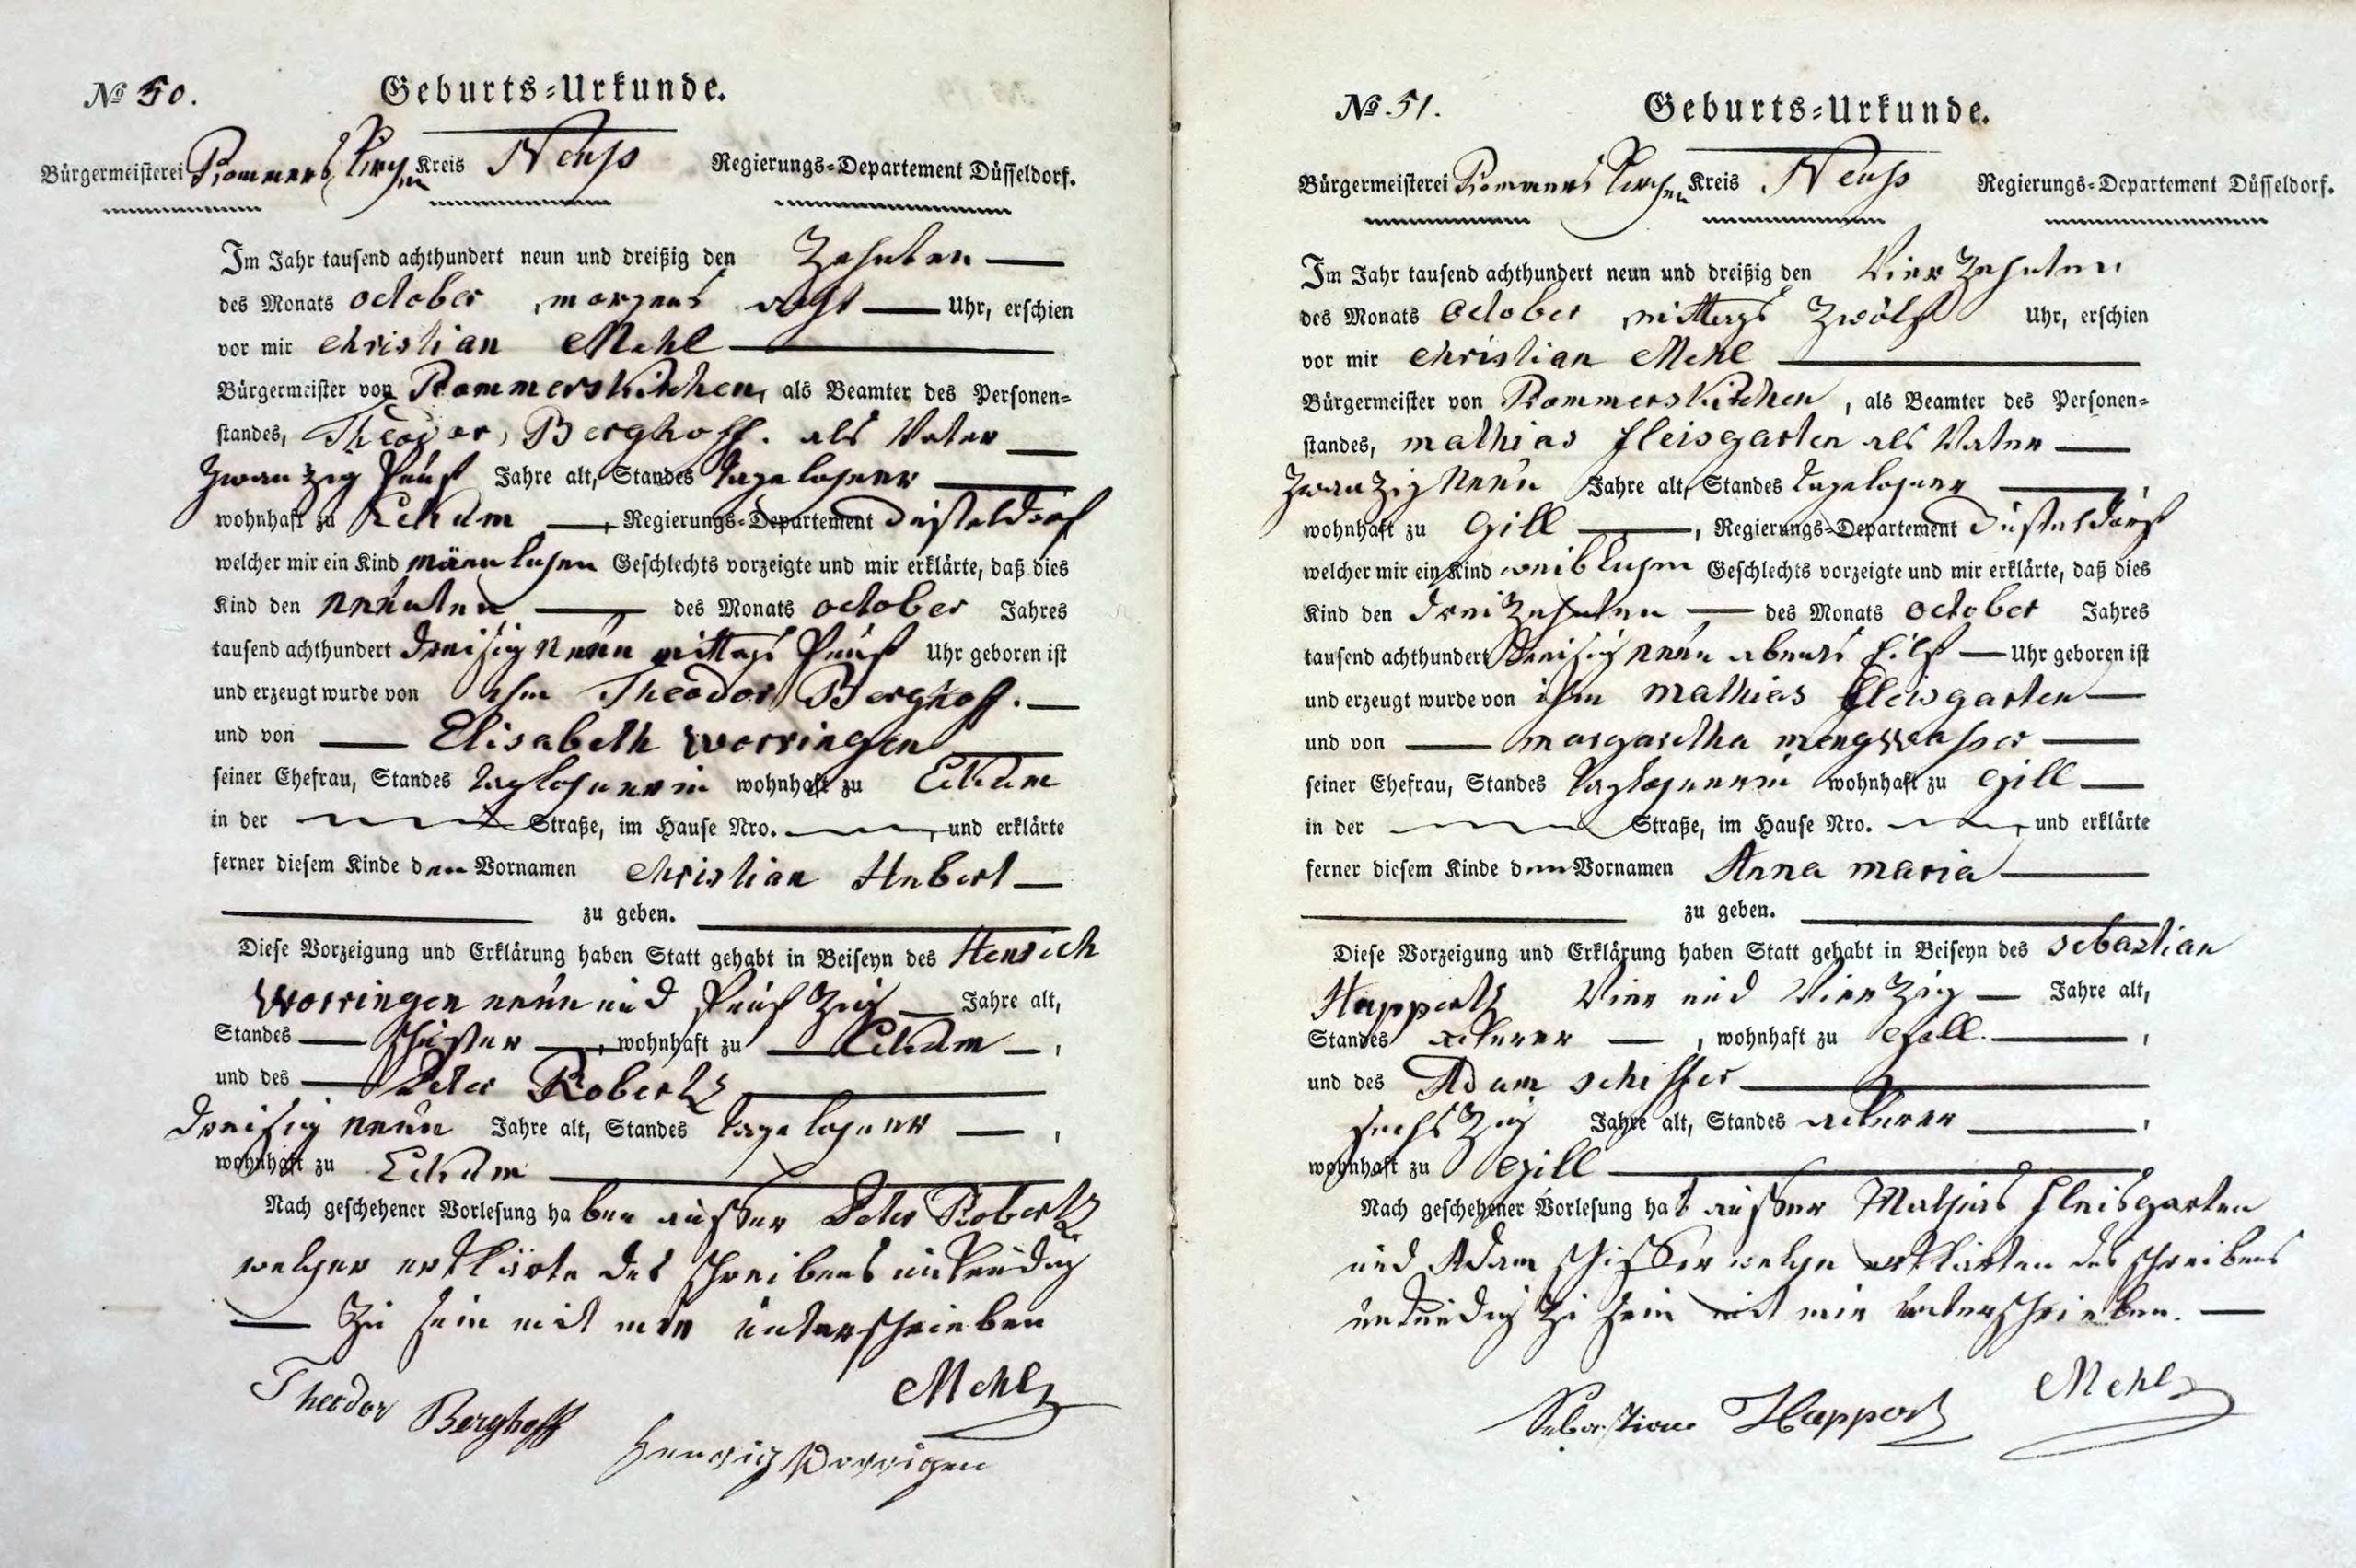 № 50.
Geburts-Urkunde.
Bürgermeisterei Rommerskirchen Kreis Neuß Regierungs-Departement Düsseldorf.
Im Jahr tausend achthundert neun und dreißig den Zehnten
des Monats October, morgens acht Uhr, erschien
vor mir Christian Mehl
Bürgermeister von Rommerskirchen, als Beamter des Personen-
standes, Theodor, Berghoff. als Vater
zwanzig fünf Jahre alt, Standes Tagelohner
wohnhaft zu Eckum, Regierungs-Departement Düsseldorf
welcher mir ein Kind männlichen Geschlechts vorzeigte und mir erklärte, daß dies
Kind den neunten des Monats October Jahres
tausend achthundert dreisig neun mittags fünf Uhr geboren ist
und erzeugt wurde von ihm Theodor Berghoff.
und von Elisabeth Worringen
seiner Ehefrau, Standes Taglohnerin wohnhaft zu Eckum
in der Straße, im Hause Nro. , und erklärte
ferner diesem Kinde den Vornamen Christian Hubert
zu geben.
Diese Vorzeigung und Erklärung haben Statt gehabt in Beiseyn des Henrich
Worringen neun und fünfzig Jahre alt,
Standes , wohnhaft zu Eckum ,
und des Peter Robertz
dreisig neun Jahre alt, Standes Tagelohner ,
wohnhaft zu Eckum
Nach geschehener Vorlesung haben außer Peter Robertz
welcher erklärte des schreibens unkundig
zu sein mit mir unterschrieben
Mehl
Theodor Berghoff
Henrich Worringen
№ 51.
Geburts-Urkunde.
Bürgermeisterei Rommerskirchen Kreis Neuß Regierungs-Departement Düsseldorf.
Im Jahr tausend achthundert neun und dreißig den Vierzehnten
des Monats October, mittags Zwölf Uhr, erschien
vor mir Christian Mehl
Bürgermeister von Rommerskirchen, als Beamter des Personen-
standes, Mathias Fleisgarten als Vater
zwanzig neun Jahre alt, Standes Tagelohner ,
wohnhaft zu Gill , Regierungs-Departement Düsseldorf
welcher mir ein Kind weiblichen Geschlechts vorzeigte und mir erklärte, daß dies
Kind den dreizehnten des Monats October Jahres
tausend achthundert dreisig neun abends Eilf Uhr geboren ist
und erzeugt wurde von ihm Mathias Fleisgarten
und von Margaretha Mengwasser
seiner Ehefrau, Standes Taglohnerin wohnhaft zu Gill
in der Straße, im Hause Nro. , und erklärte
ferner diesem Kinde den Vornamen Anna Maria
zu geben.
Diese Vorzeigung und Erklärung haben Statt gehabt in Beiseyn des Sebastian
Huppertz Vier und Vierzig Jahre alt,
Standes Ackerer , wohnhaft zu Gill. ,
und des Adam Schiffer
sechszig Jahre alt, Standes Ackerer ,
wohnhaft zu Gill
Nach geschehener Vorlesung hat außer Mathias Fleisgarten
und Adam Schiffer welche erklärten des schreibens
unkundig zu sein mit mir unterschrieben.
Mehl
Sebastian Huppertz